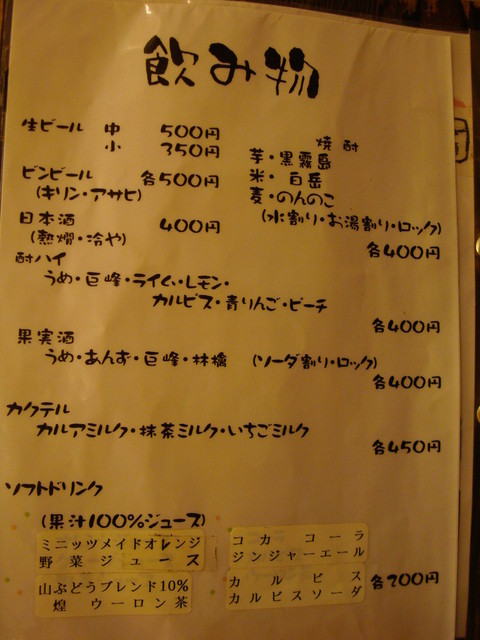 飲み物
生ビール 中 500円
小 350円
ビンビール 各500円
(キリン・アサヒ)
日本酒 400円
(熱燗・冷や)
焼酎
芋・黒霧島
米・白岳
麦・のんのこ
(水割り・お湯割り・ロック)
各400円
酎ハイ
うめ・巨峰・ライム・レモン・
カルピス・青りんご・ピーチ
各400円
果実酒
うめ・あんず・巨峰・林檎 (ソーダ割り・ロック)
各400円
カクテル
カルアミルク・抹茶ミルク・いちごミルク
各450円
ソフトドリンク
(果汁100%ジュース)
ミニッツメイドオレンジ
野菜ジュース
山ぶどうブレンド10%
煌 ウーロン茶
コカコーラ
ジンジャーエール
カルピス
カルピスソーダ
各200円